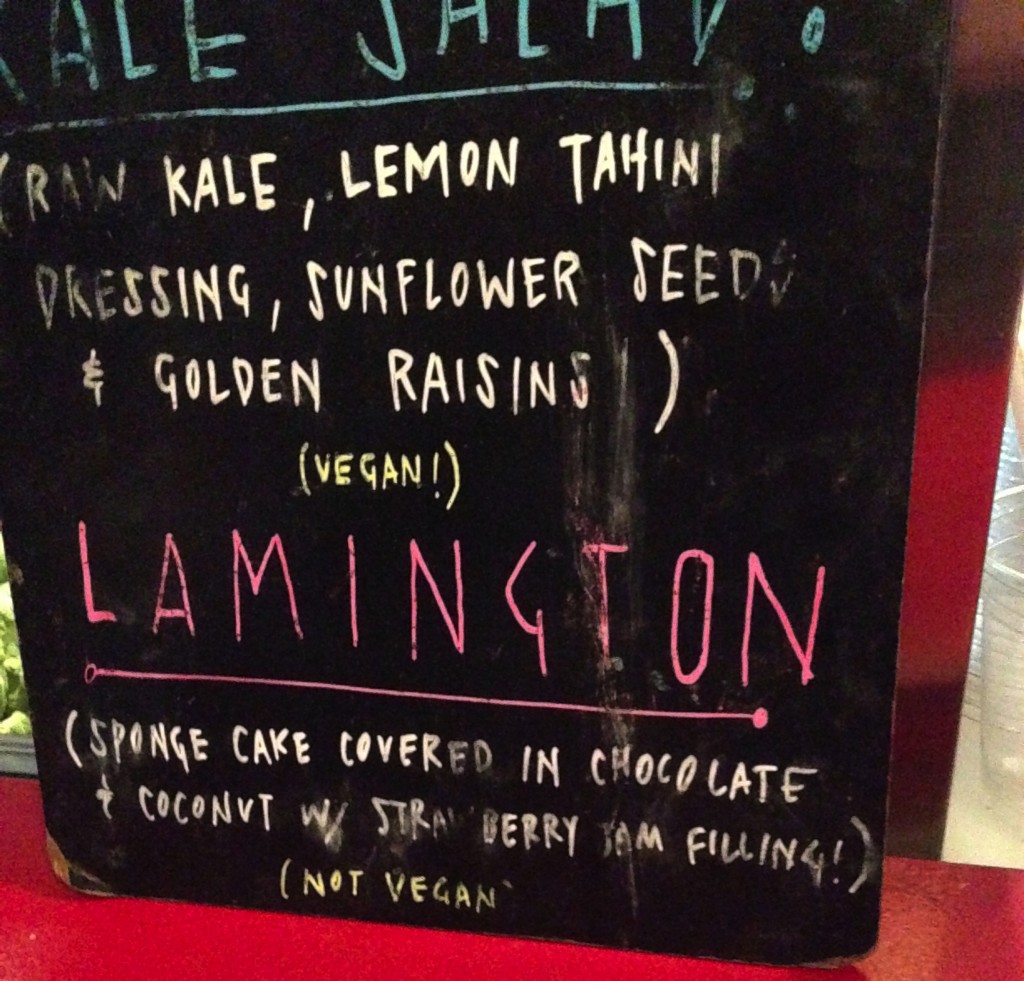 KALE SALAD:
(RAW KALE, LEMON TAHINI
DRESSING, SUNFLOWER SEEDS
& GOLDEN RAISINS)
(VEGAN!)
LAMINGTON
(SPONGE CAKE COVERED IN CHOCOLATE
& COCONUT W/ STRAWBERRY JAM FILLING!)
(NOT VEGAN